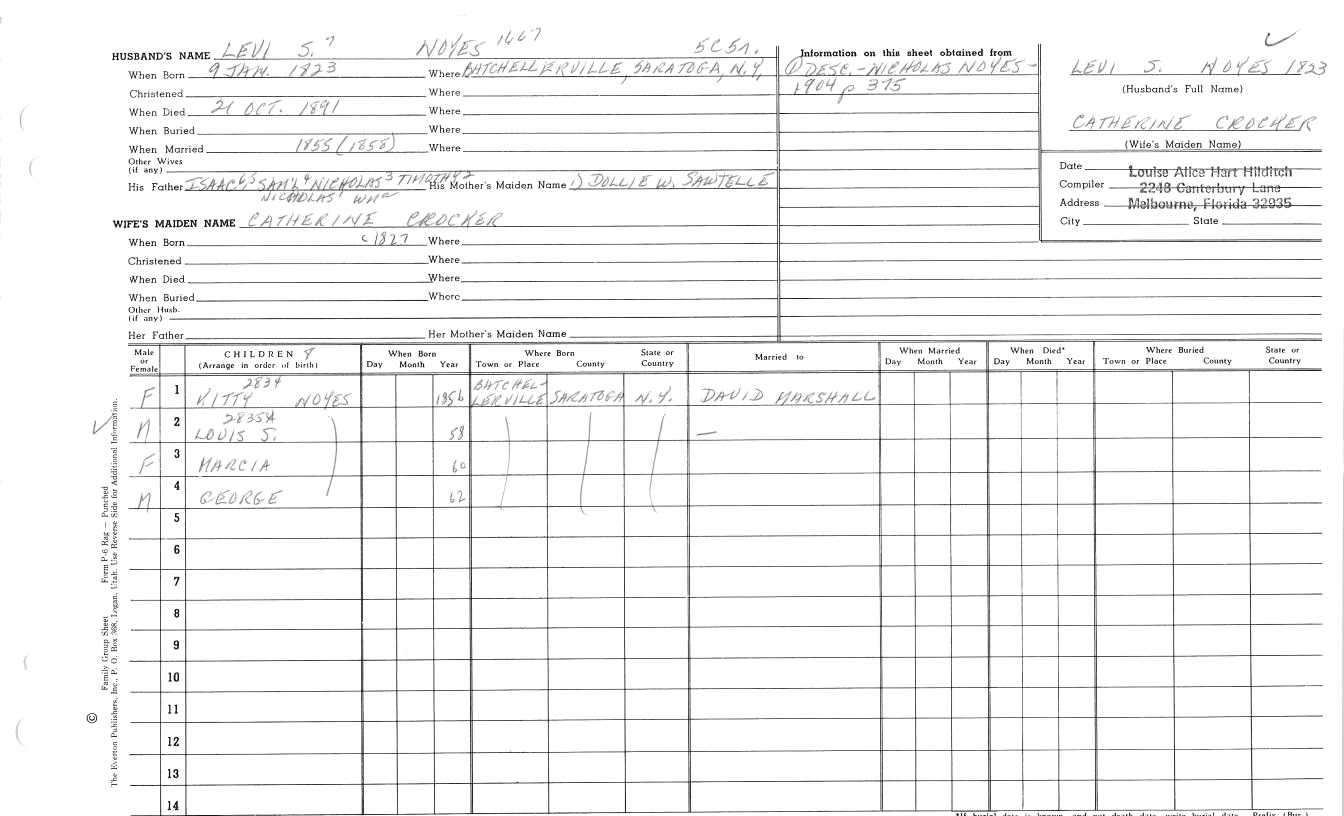 HUSBAND'S NAME LEVI S.7 NOYES 1467 5C5n.
When Born 9 JAN. 1823 Where BATCHELLERVILLE, SARATOGA, N.Y.
Christened Where
When Died 21 OCT. 1891 Where
When Buried Where
When Married 1855 (1858) Where
Other Wives
(if any)
His Father ISAAC6,5 SAM'L4 NICHOLAS3 TIMOTHY2 His Mother's Maiden Name 1) DOLLIE W. SAWTELLE
NICHOLAS1 WMc
WIFE'S MAIDEN NAME CATHERINE CROCKER
When Born c1827 Where
Christened Where
When Died Where
When Buried Where
Other Husb.
(if any)
Her Father Her Mother's Maiden Name
Information on this sheet obtained from
① DESC. - NICHOLAS NOYES -
1904 p 375
LEVI S. NOYES 1823
(Husband's Full Name)
CATHERINE CROCKER
(Wife's Maiden Name)
Date
Louise Alice Hart Hilditch
Compiler 2248 Canterbury Lane
Address Melbourne, Florida 32935
City State
Male or Female CHILDREN 8 (Arrange in order of birth) When Born Day Month Year Where Born Town or Place County State or Country Married to When Married Day Month Year When Died* Day Month Year Where Buried Town or Place County State or Country
2834 BATCHEL-
F 1 KITTY NOYES 1856 LERVILLE SARATOGA N.Y. DAVID MARSHALL
2835A
M 2 LOUIS S. 58 —
F 3 MARCIA 60
M 4 GEORGE 62
5
6
7
8
9
10
11
12
13
14
Family Group Sheet Form P-6 Rag — Punched
© The Everton Publishers, Inc., P. O. Box 368, Logan, Utah. Use Reverse Side for Additional Information.